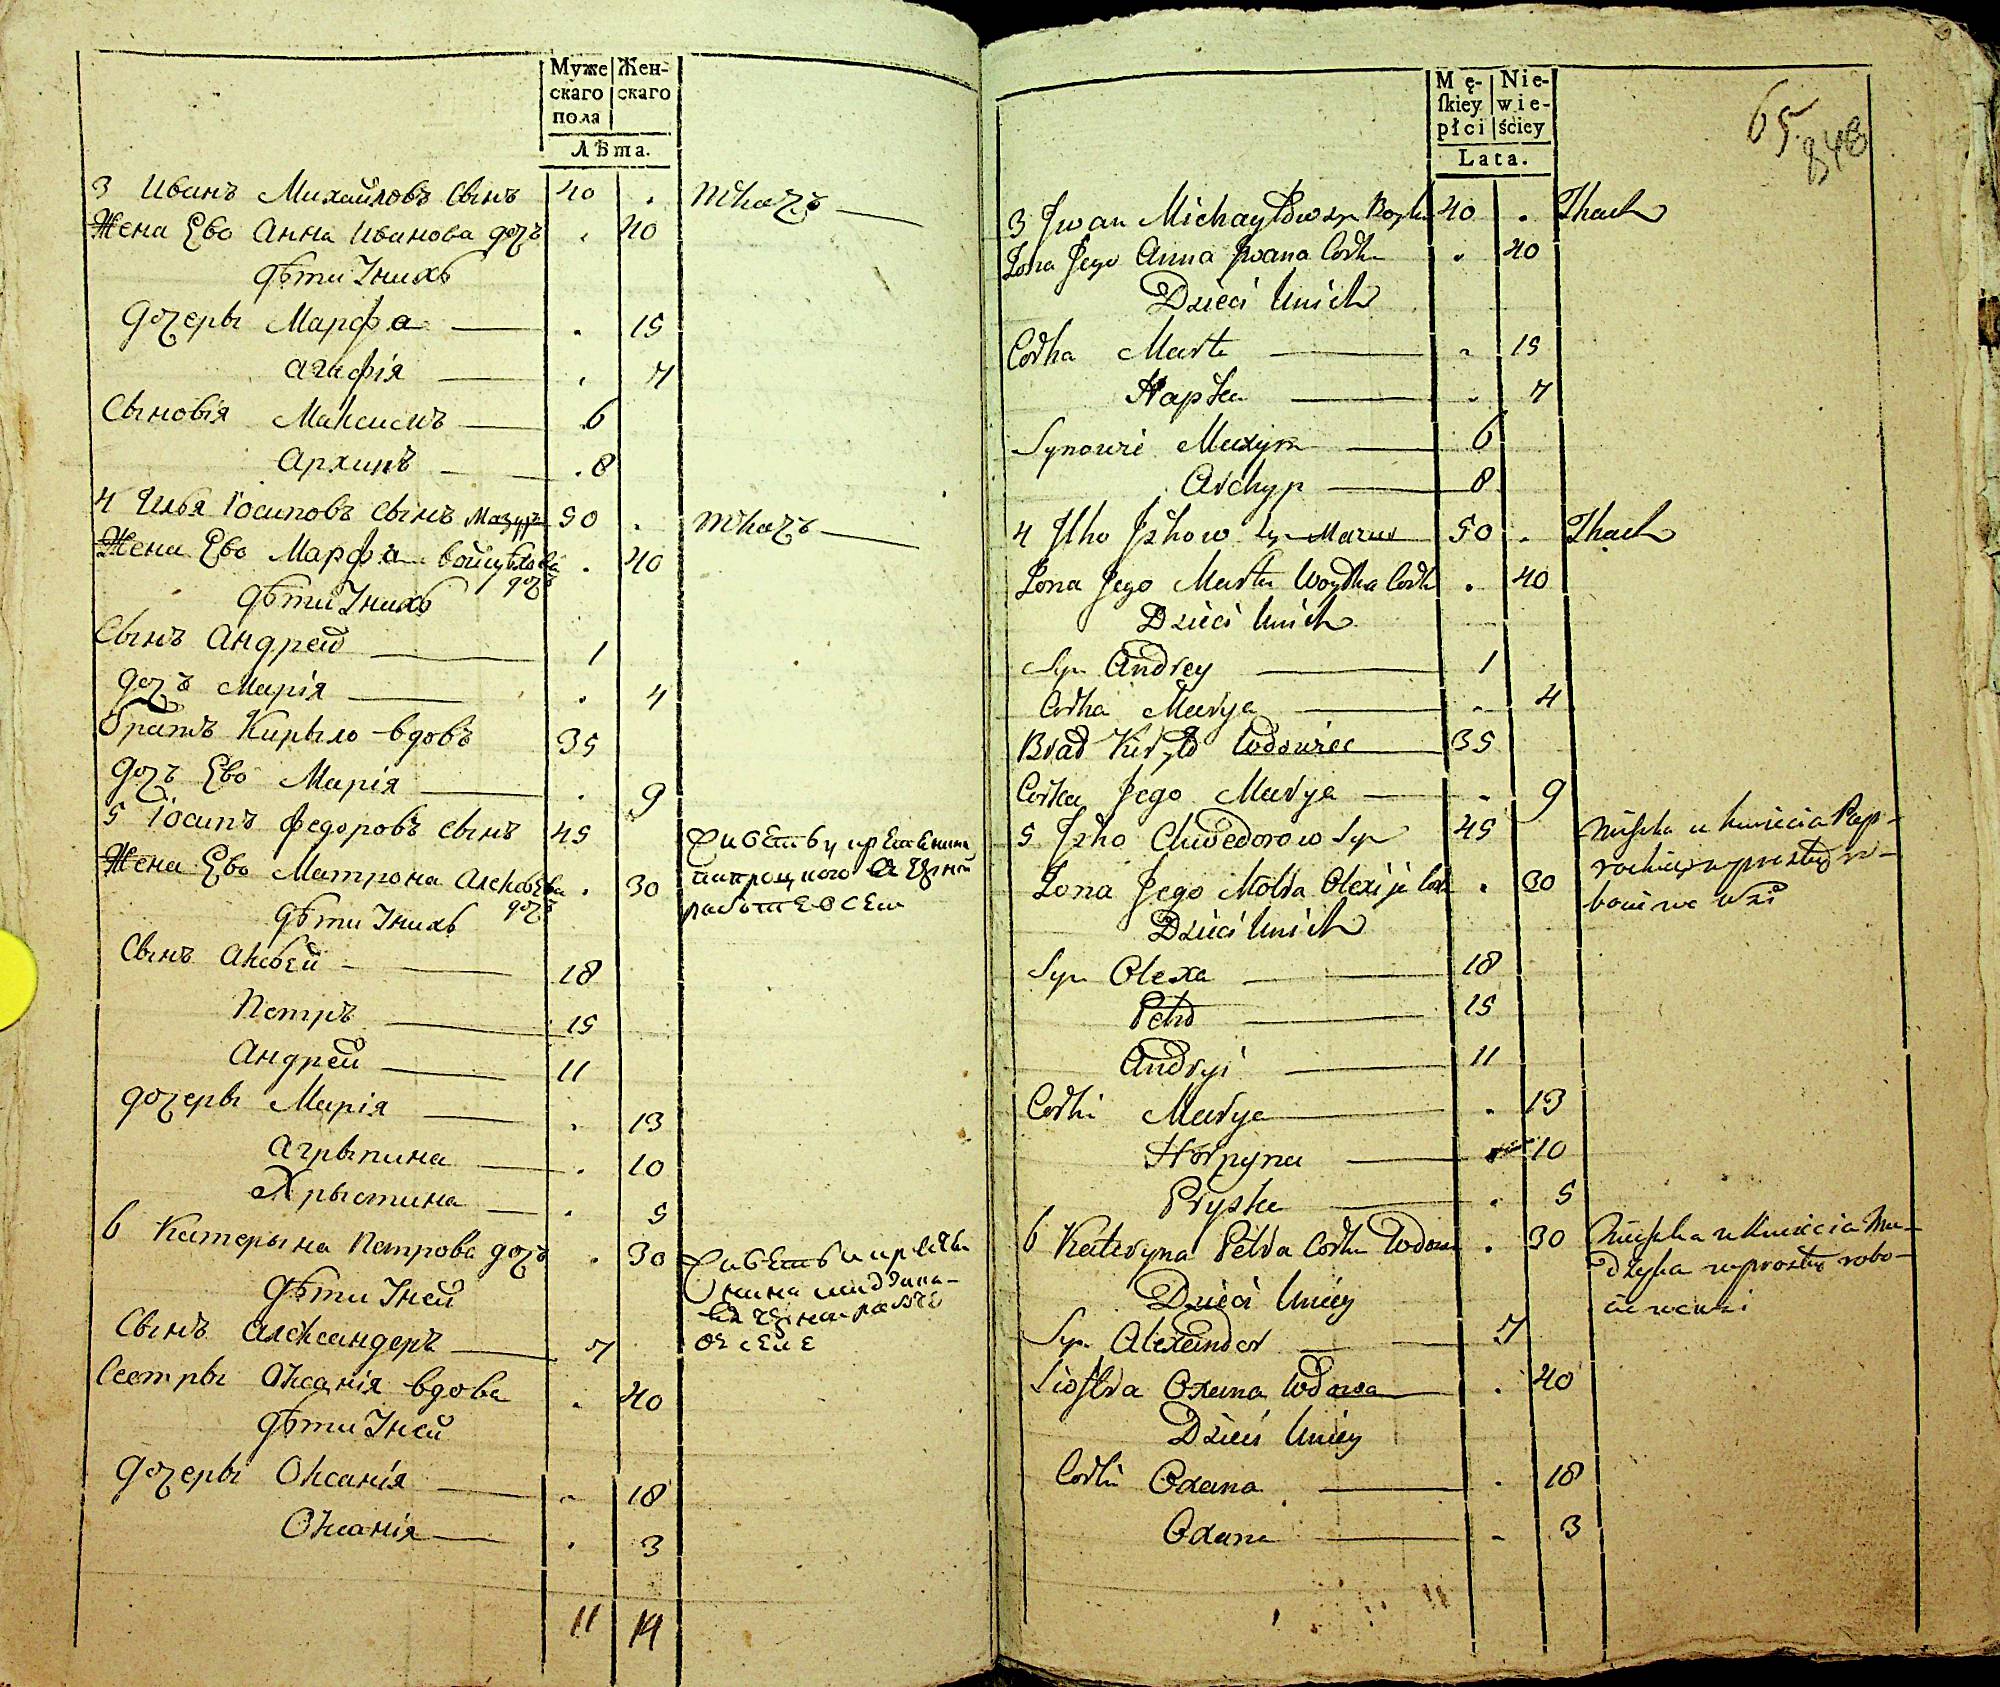 Муже
скаго
пола
Жен-
скаго
Лѣта.
3 Иванъ Михайловъ сынъ 40 . ткачъ
Жена Ево Анна Иванова дочъ . 40
дѣти Ӏнихъ
дочеры Марфа . 15
Агафія . 7
Сыновія Максимъ 6
Архипъ . 8
4 Илья Іосиповъ сынъ Мазуръ 50 . ткачъ
Жена Ево Марфа Войцѣхова дочъ . 40
дѣти Ӏнихъ
Сынъ Андрей 1
дочъ Марія . 4
братъ Кирыло вдовъ 35
дочъ Ево Марія . 9
5 Іосипъ Федоровъ сынъ 45
Жена Ево Матрона Алексѣева дочъ . 30
дѣти Ӏнихъ
Сынъ Алексѣй 18
Петръ 15
Андрей 11
дочеры Марія . 13
Агрыпина . 10
Хрыстина . 5
6 Катерына Петрова дочъ . 30
дѣти Ӏней
Сынъ Александеръ 7
Сестры Оксанія вдова . 40
дѣти Ӏней
дочеры Оксанія . 18
Оксанія . 3
11 14
Mę-
ſkiey
płci
Nie-
wie-
ściey
Lata.
65.
848
3 Jwan Michayłow syn 40 . Tkach
Żona Jego Anna Jwana Corka . 40
Dzieci Unich
Corka Marta . 15
Hapka . 7
Synowie Maxym 6
Archyp 8
4 Ilko Jzkow syn Mazur 50 . Tkach
Żona Jego Marta Woytka Corka . 40
Dzieci Unich
Syn Andrey 1
Corka Marya . 4
Brat Kiryło Wdowiec 35
Corka Jego Marya . 9
5 Jzko Chwedorow Syn 45
Żona Jego Motra Olexije Cork . 30
Dzieci Unich
Syn Olexa 18
Petro 15
Andryi 11
Corki Marya . 13
Horpyna 10
Pryska . 5
6 Kateryna Petra Corka Wdowa . 30
Dzieci Uniey
Syn Alexander 7
Siostra Oxana Wdowa . 40
Dzieci Uniey
Corki Oxana . 18
Oxana . 3